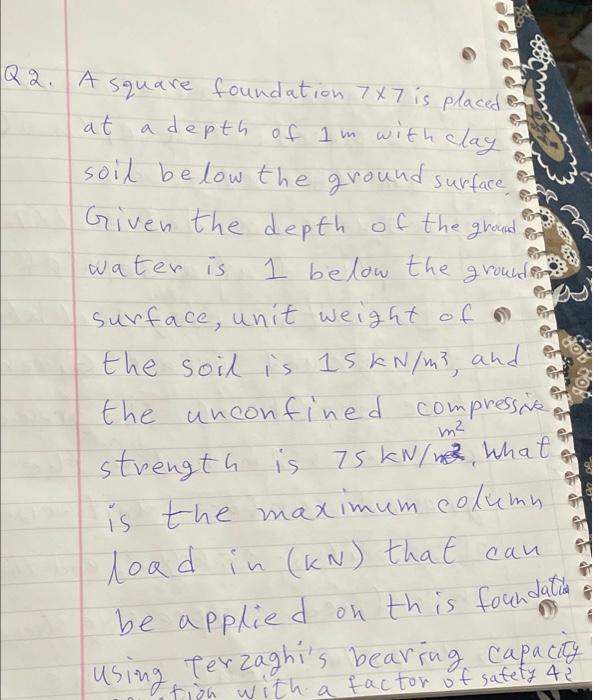 Q2. A square foundation 7x7 is placed
at a depth of 1m with clay
soil below the ground surface.
Given the depth of the ground
water is 1 below the ground
surface, unit weight of
the soil is 15 kN/m³, and
the unconfined compressive
strength is 75 kN/m², what
is the maximum column
load in (kN) that can
be applied on this foundation
using Terzaghi's bearing capacity
with a factor of safety 4?